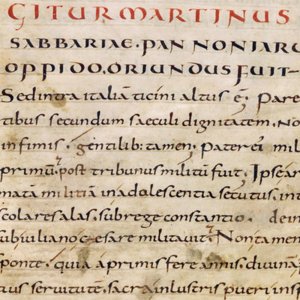 GITUR MARTINUS
SABBARIAE. PANNONIARU
OPPIDO, ORIUNDUS FUIT
Sed intra italiā ticini altus ē; Pare
tibus secundum saeculi dignitatem, No
infimis, gentilib; tamen, Pater ei mil
primū, post tribunus militū fuit, Ipse ar
matā militiā in adolescentia secutus, int
scolares alas, sub rege constantio, dein
sub iuliano cęsare militavit, Non tamen
ponte, quia a primis fere annis, divinā
ius servitute, sacra inlustris pueri ins